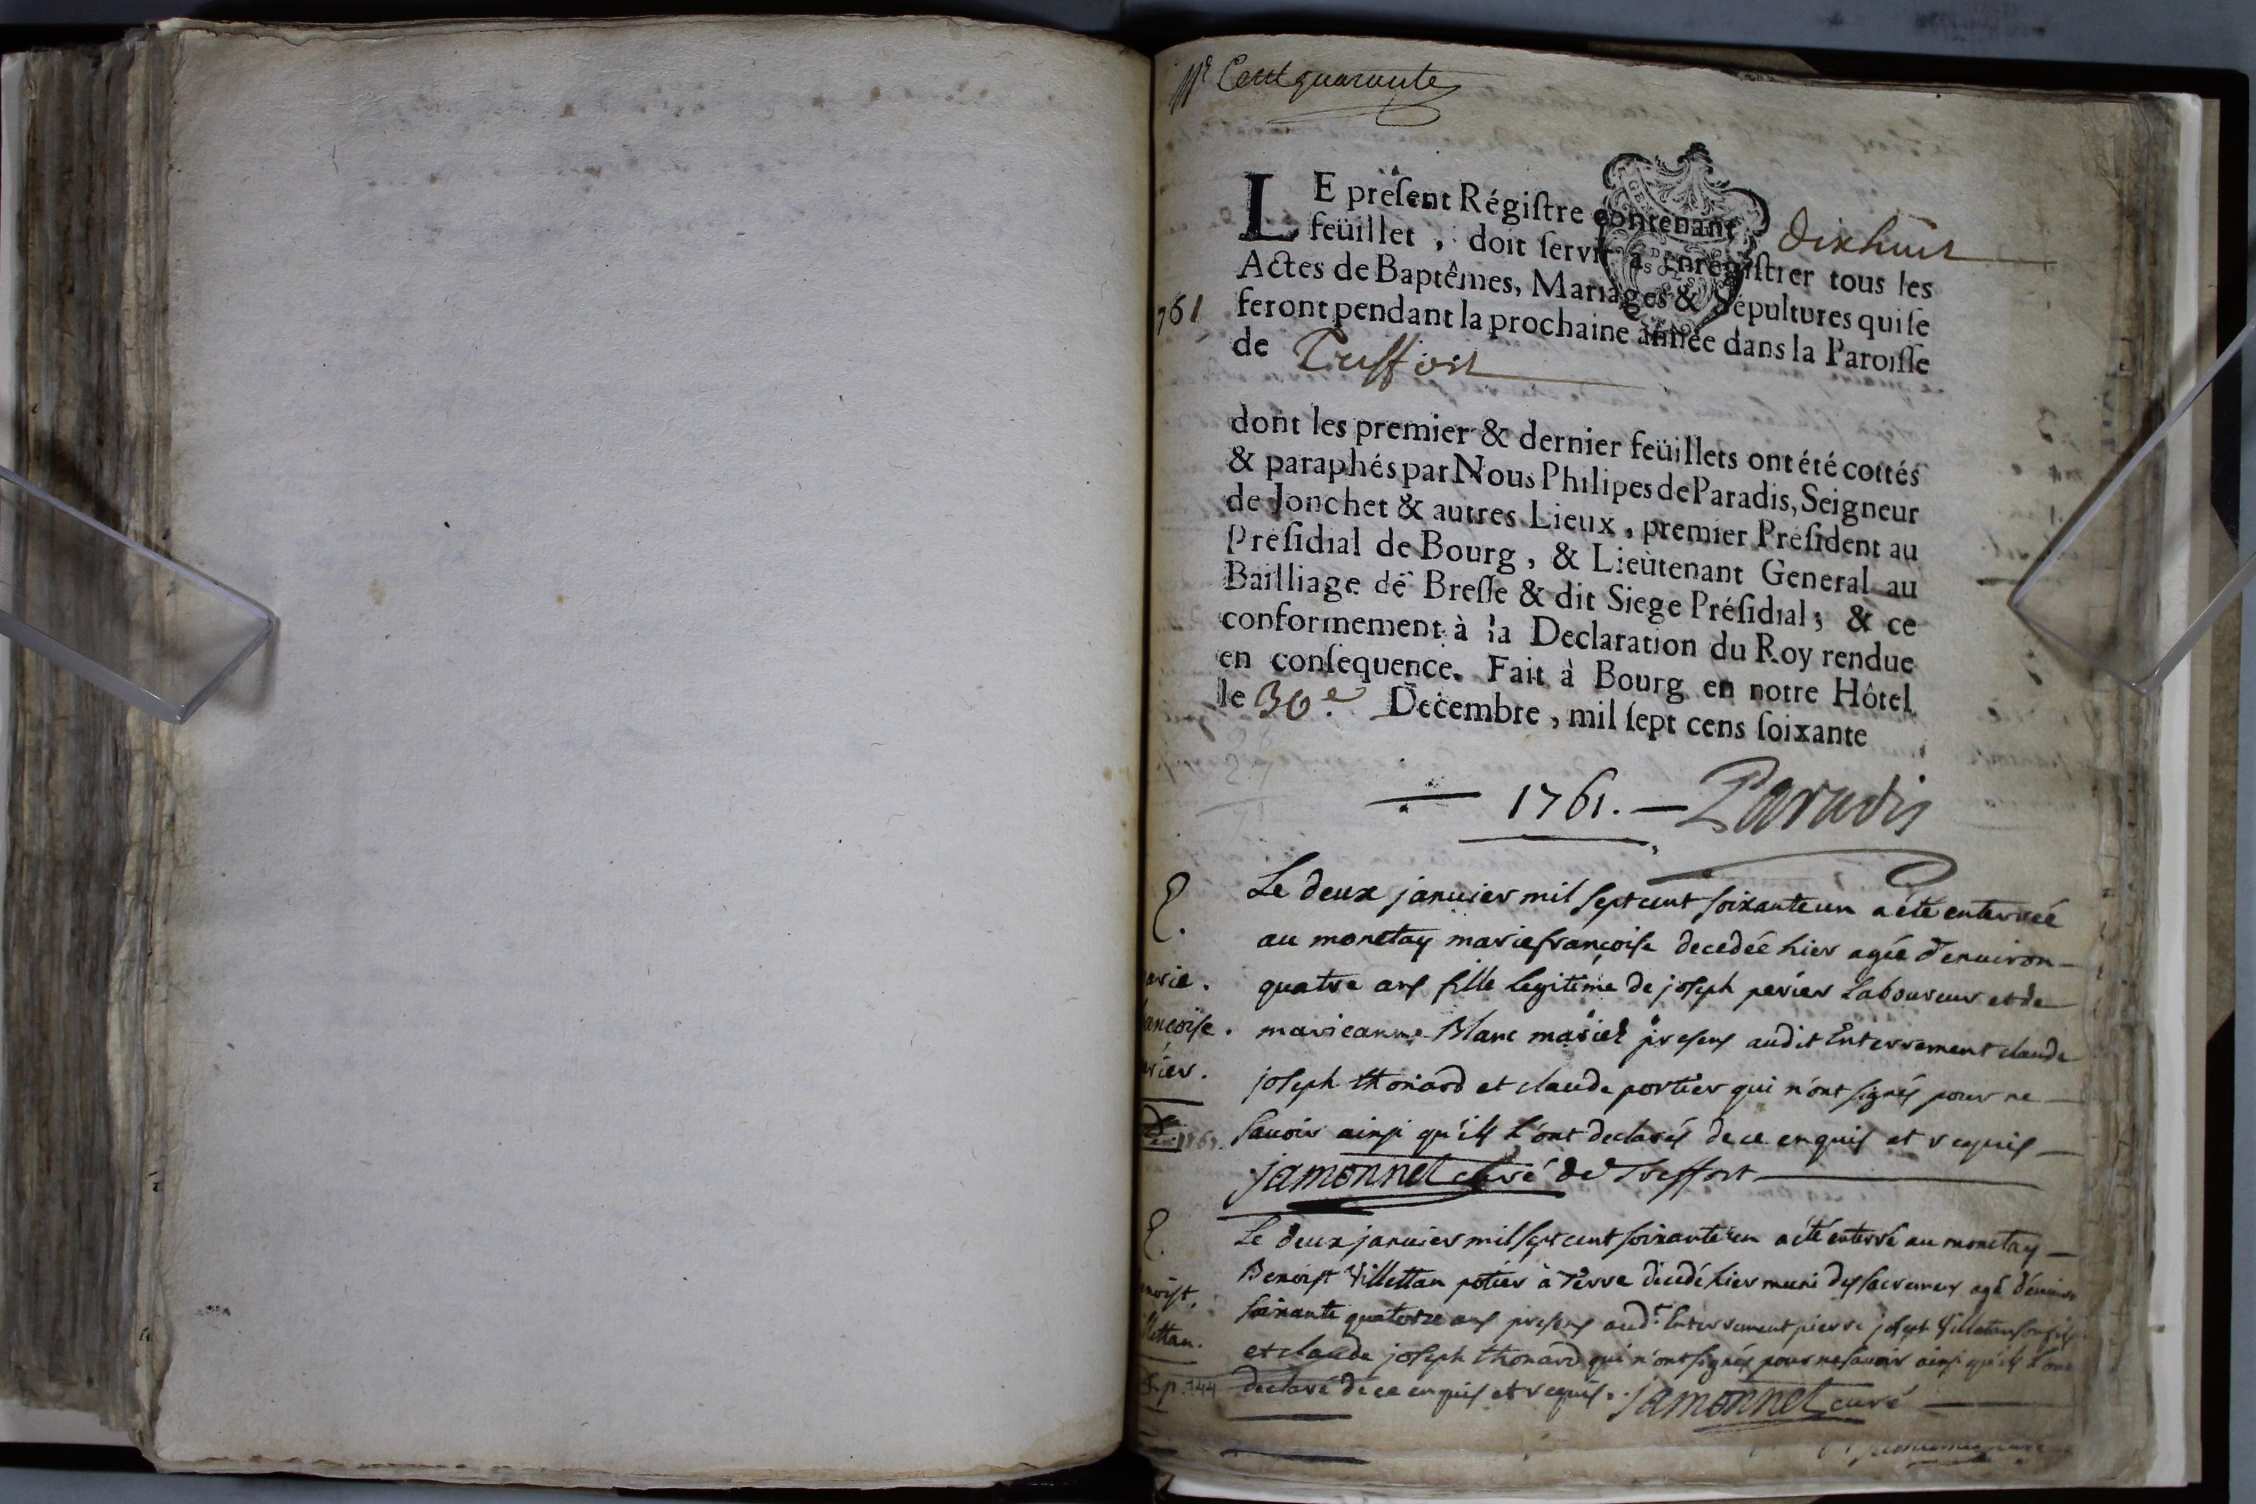 Cent quarante
LE présent Régistre contenant dixhuit
feüillet, doit servir à enregistrer tous les
Actes de Baptêmes, Mariages & Sépultures qui se
761
feront pendant la prochaine année dans la Paroisse
de Treffort
dont les premier & dernier feüillets ont été cottés
& paraphés par Nous Philipes de Paradis, Seigneur
de Jonchet & autres Lieux, premier Président au
Présidial de Bourg, & Lieùtenant General au
Bailliage de Bresse & dit Siege Présidial; & ce
conformement à la Declaration du Roy rendue
en consequence. Fait à Bourg en notre Hôtel
le 30e. Decembre, mil sept cens soixante
1761. Paradis
Le deux janvier mil sept cent soixante un a été enterrée
au monetay marie françoise decedée hier agée d'environ
quatre ans fille legitime de joseph périer Laboureur et de
marie anne Blanc mariés presens audit Enterrement claude
joseph thonard et claude portier qui n'ont signés pour ne
savoir ainsi qu'ils l'ont declarés de ce enquis et requis
jamonnet curé de Treffort
arie.
ançoise.
rier.
Le deux janvier mil sept cent soixante un a été enterré au monetay
Benoist Villettan potier à Terre décedé hier muni des sacremens agé d'environ
soixante quatorze ans presens audt. Enterrement pierre joseph Villettan son fils
et claude joseph thonard qui n'ont signés pour ne savoir ainsi qu'ils l'ont
declaré de ce enquis et requis. jamonnet curé
noist,
llettan.